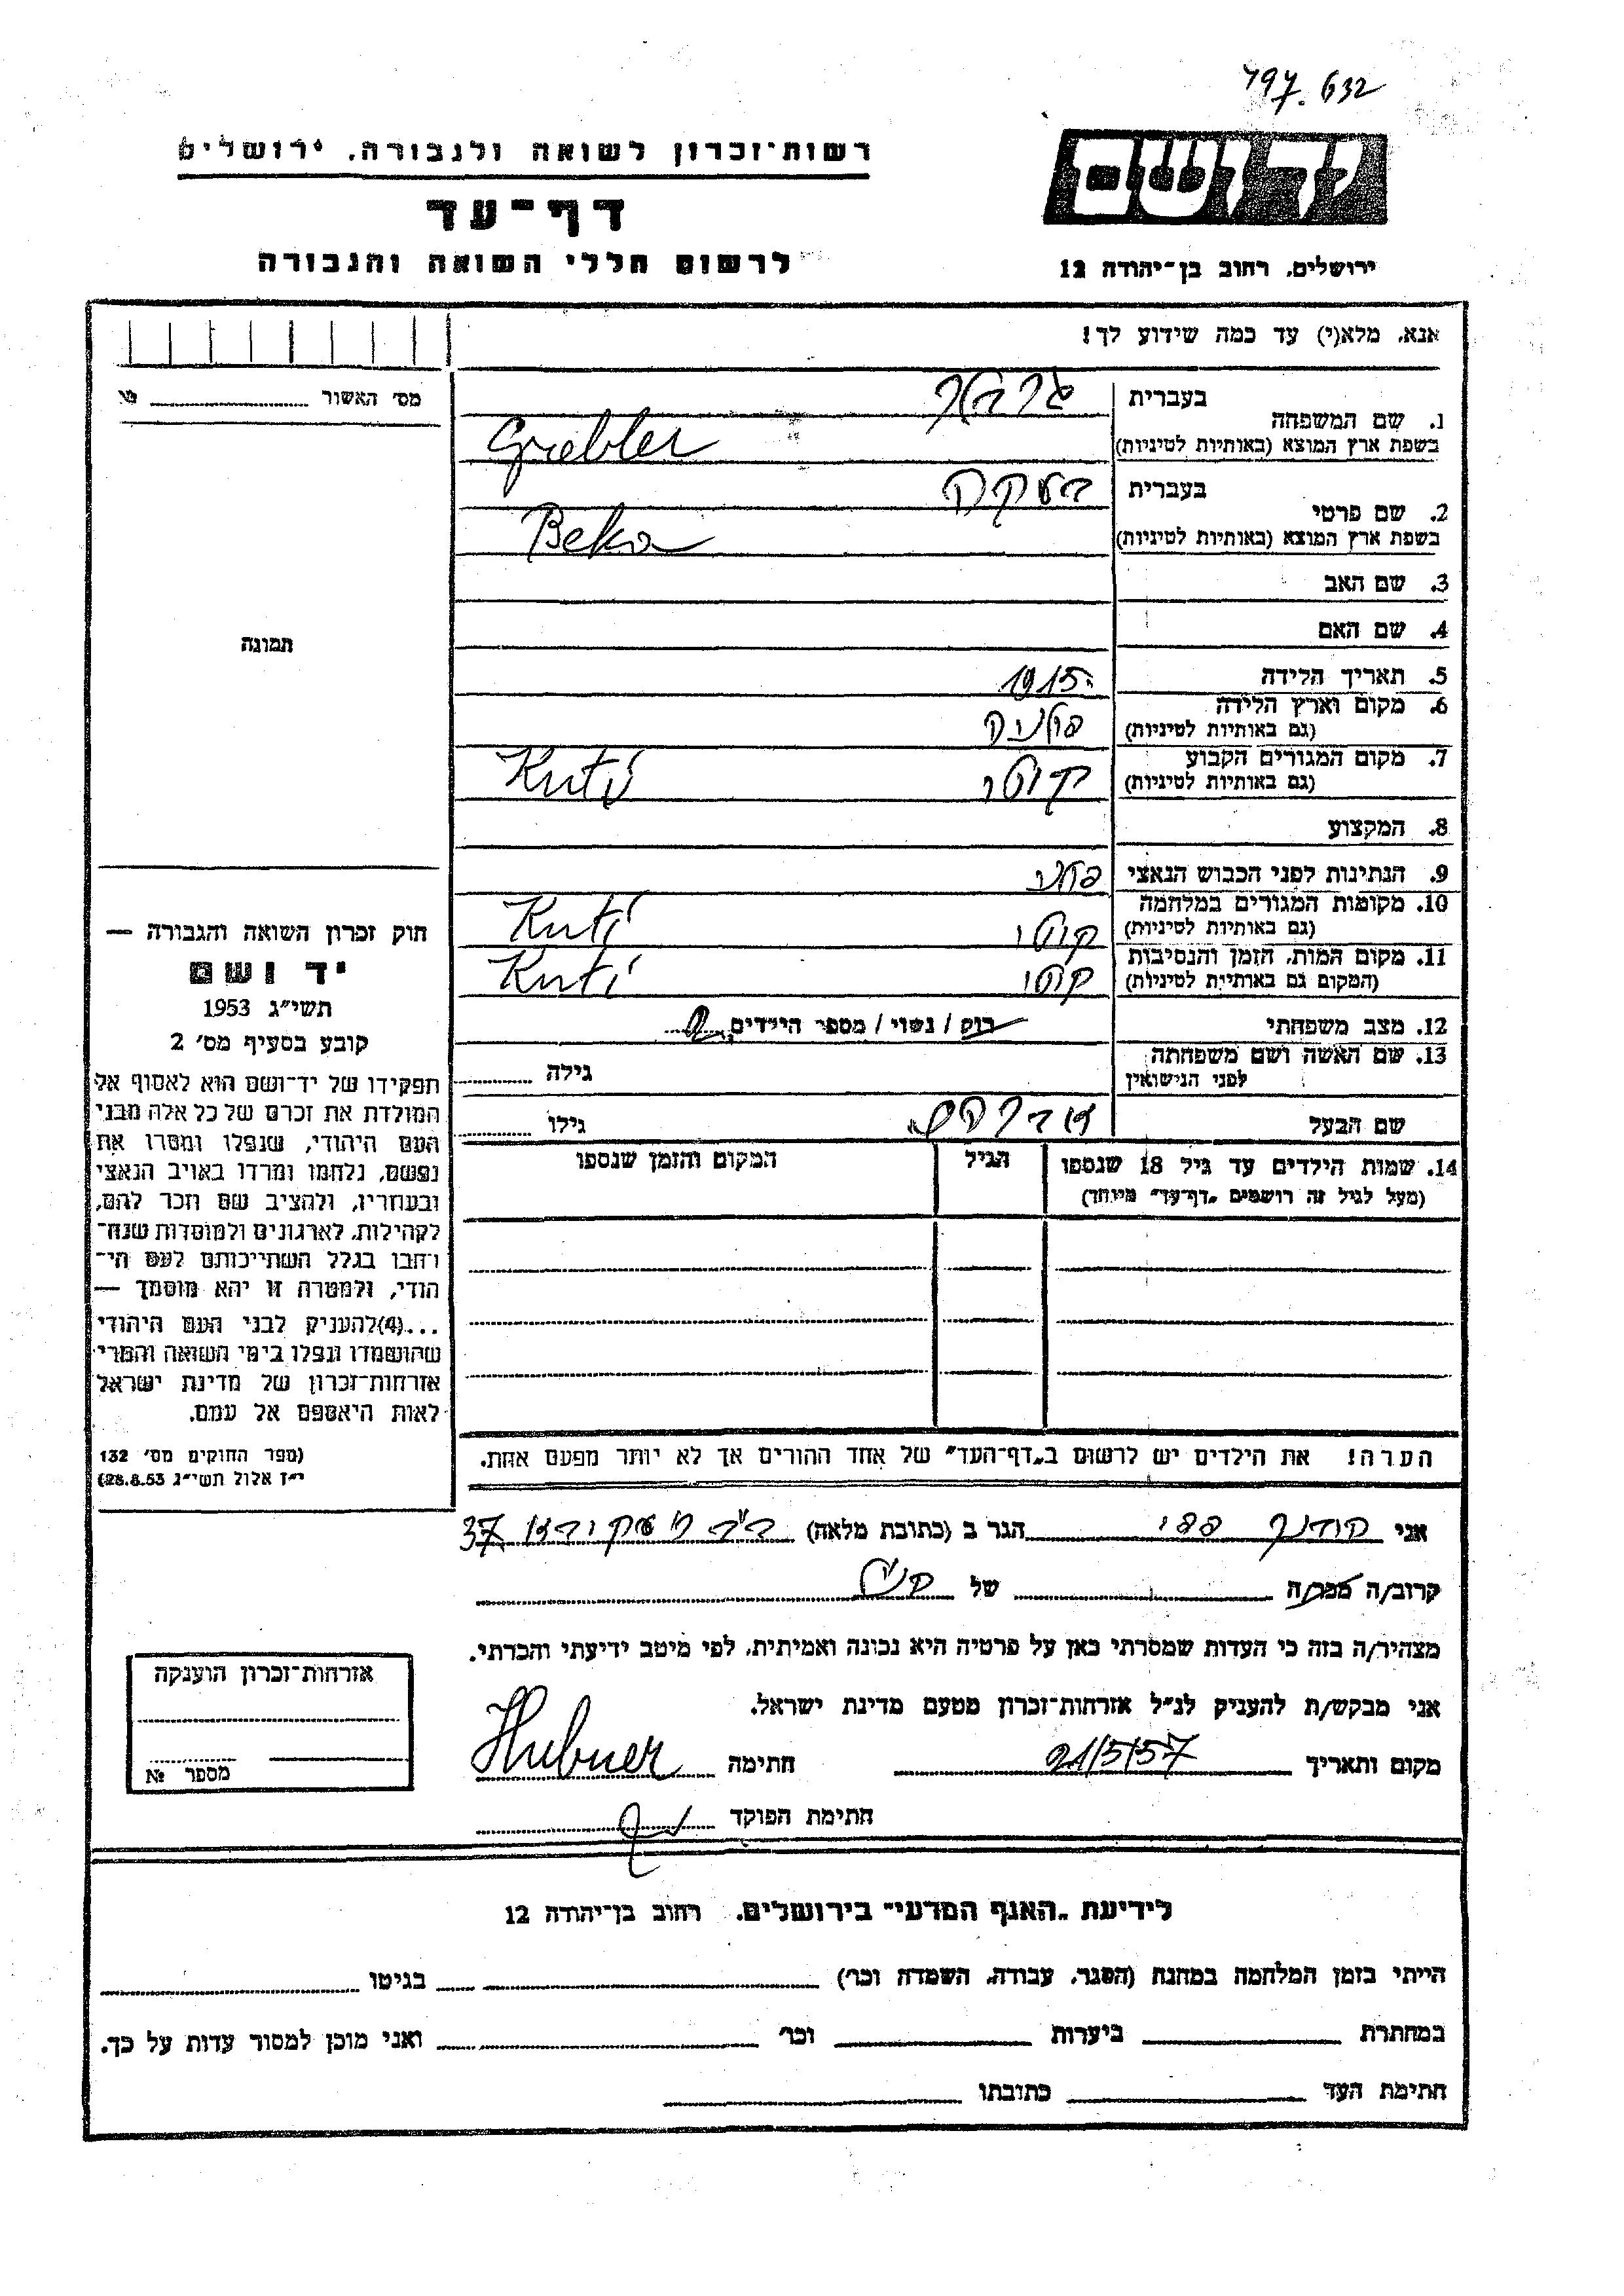 797.632
רשות־זכרון לשואה ולגבורה, ירושלים
יד ושם
דף־עד
לרשום חללי השואה והגבורה
ירושלים, רחוב בן־יהודה 12
אנא, מלא(י) עד כמה שידוע לך!
מס׳ האשור № 
1. שם המשפחה
בעברית גרבלר
בשפת ארץ המוצא (באותיות לטיניות) Grebler
2. שם פרטי
בעברית
בשפת ארץ המוצא (באותיות לטיניות) Beka
3. שם האב
4. שם האם
תמונה
5. תאריך הלידה 1915
6. מקום וארץ הלידה
(גם באותיות לטיניות) פולניה
7. מקום המגורים הקבוע
(גם באותיות לטיניות) קוטי Kuty
8. המקצוע
9. הנתינות לפני הכבוש הנאצי פולני
10. מקומות המגורים במלחמה
(גם באותיות לטיניות) קוטי Kuti
11. מקום המות, הזמן והנסיבות
(המקום גם באותיות לטיניות) קוטי Kuti
12. מצב משפחתי רוק / נשוי / מספר הילדים
13. שם האשה ושם משפחתה
לפני הנישואין גילה
שם הבעל גילו
14. שמות הילדים עד גיל 18 שנספו הגיל המקום והזמן שנספו
(מעל לגיל זה רושמים „דף־עד״ מיוחד)
הערה! את הילדים יש לרשום ב„דף־העד״ של אחד ההורים אך לא יותר מפעם אחת.
חוק זכרון השואה והגבורה —
יד ושם
תשי״ג 1953
קובע בסעיף מס׳ 2
תפקידו של יד־ושם הוא לאסוף אל
המולדת את זכרם של כל אלה מבני
העם היהודי, שנפלו ומסרו את
נפשם, נלחמו ומרדו באויב הנאצי
ובעוזריו, ולהציב שם וזכר להם,
לקהילות, לארגונים ולמוסדות שנח־
רבו בגלל השתייכותם לעם הי־
הודי, ולמטרה זו יהא מוסמך —
...(4)להעניק לבני העם היהודי
שהושמדו ונפלו בימי השואה והמרי
אזרחות־זכרון של מדינת ישראל
לאות היאספם אל עמם.
(ספר החוקים מס׳ 132
י״ז אלול תשי״ג 28.8.53)
אני פפי הגר ב (כתובת מלאה) 37
קרוב/ה מכר/ה של
מצהיר/ה בזה כי העדות שמסרתי כאן על פרטיה היא נכונה ואמיתית, לפי מיטב ידיעתי והכרתי.
אני מבקש/ת להעניק לנ״ל אזרחות־זכרון מטעם מדינת ישראל.
מקום ותאריך 21/5/57 חתימה Hubner
חתימת הפוקד
אזרחות־זכרון הוענקה
מספר №
לידיעת „האגף המדעי״ בירושלים, רחוב בן־יהודה 12
הייתי בזמן המלחמה במחנה (הסגר, עבודה, השמדה וכו׳) בגיטו
במחתרת ביערות וכו׳ ואני מוכן למסור עדות על כך.
חתימת העד כתובתו